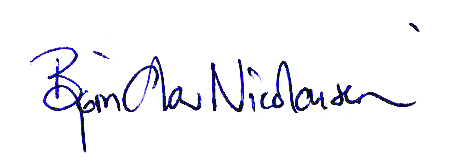 Bjørn Olav Nicolaisen